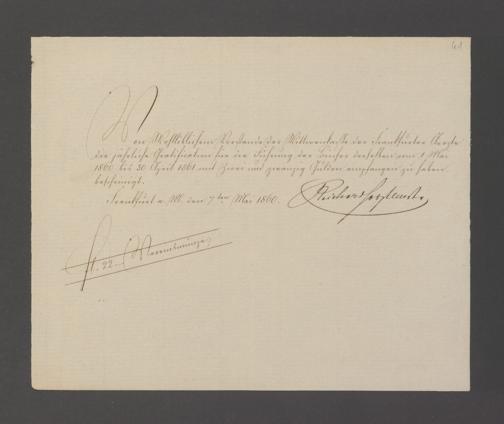 41
Von Wohllöblichem Vorstande der Wittwenkasse der Frankfurter Aerzte
die jährliche Gratification für die Führung der Bücher derselben vom 1 Mai
1860 bis 30 April 1861 mit Zwei und zwanzig Gulden empfangen zu haben
bescheinigt.
Frankfurt a. M. den 7ten Mai 1860.
fl. 22 Vereinsmünze